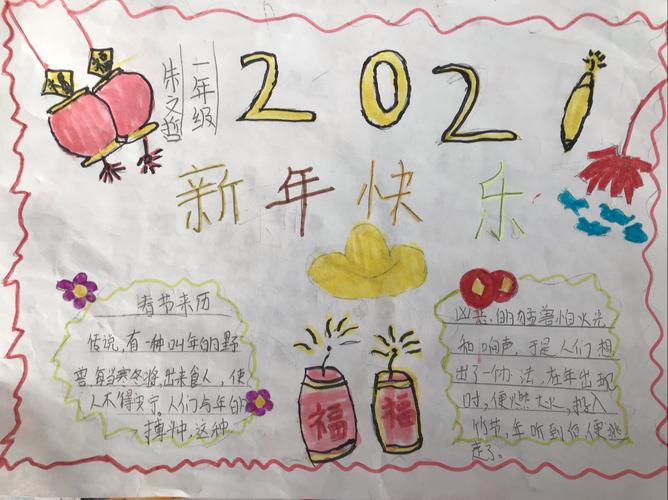 一年级
朱文哲
2021
新年快乐
春节来历
传说,有一种叫年的野
兽,每当寒冬将,出来食人,使
人不得安宁。人们与年的
搏斗中,这种
福
福
的猛兽怕火光
和响声,于是人们想
出了一办法,在年出现
时,便燃大火,投入
竹节,年听到后便逃
走了。